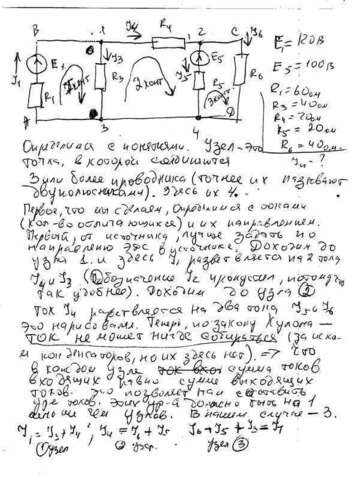 B 1 I4 R4 2 C I6
E1 I3 E5
I1 R3 I5 R6
R1 1 конт 2 конт R5 3 конт
A 3 4 D
E1 = 120В
E5 = 100В
R1 = 60 ом
R3 = 40 ом
R4 = 20 ом
R5 = 20 ом
R6 = 40 ом
I4 - ?
Определимся с понятиями. Узел - это
точка, в которой соединяются
3 или более проводника (точнее их называют
двухполюсниками). Здесь их 4.
Первое, что мы сделаем, определимся с токами
(кол-во отличающихся) и их направлением.
Первый, от источника, лучше задать по
направлению эдс в источнике. Доходим до
узла 1 и здесь I1 разветвляется на 2 тока
I4 и I3 (Обозначение I2 пропустил, потому что
так удобнее). Доходим до узла 2
Ток I4 разветвляется на два тока I5 и I6
это нарисовали. Теперь, по закону Кулона -
ток не может нигде собираться (за исклю
м конденсаторов, но их здесь нет). => что
в каждом узле ток вход сумма токов
входящих равно сумме выходящих
токов. Это позволяет нам составить
ур-е токов. Этих ур-й должно быть на 1
меньше чем узлов. В нашем случае - 3.
I1 = I3 + I4; I4 = I6 + I5 I6 + I5 + I3 = I1
1 узел 2 узел узел 3